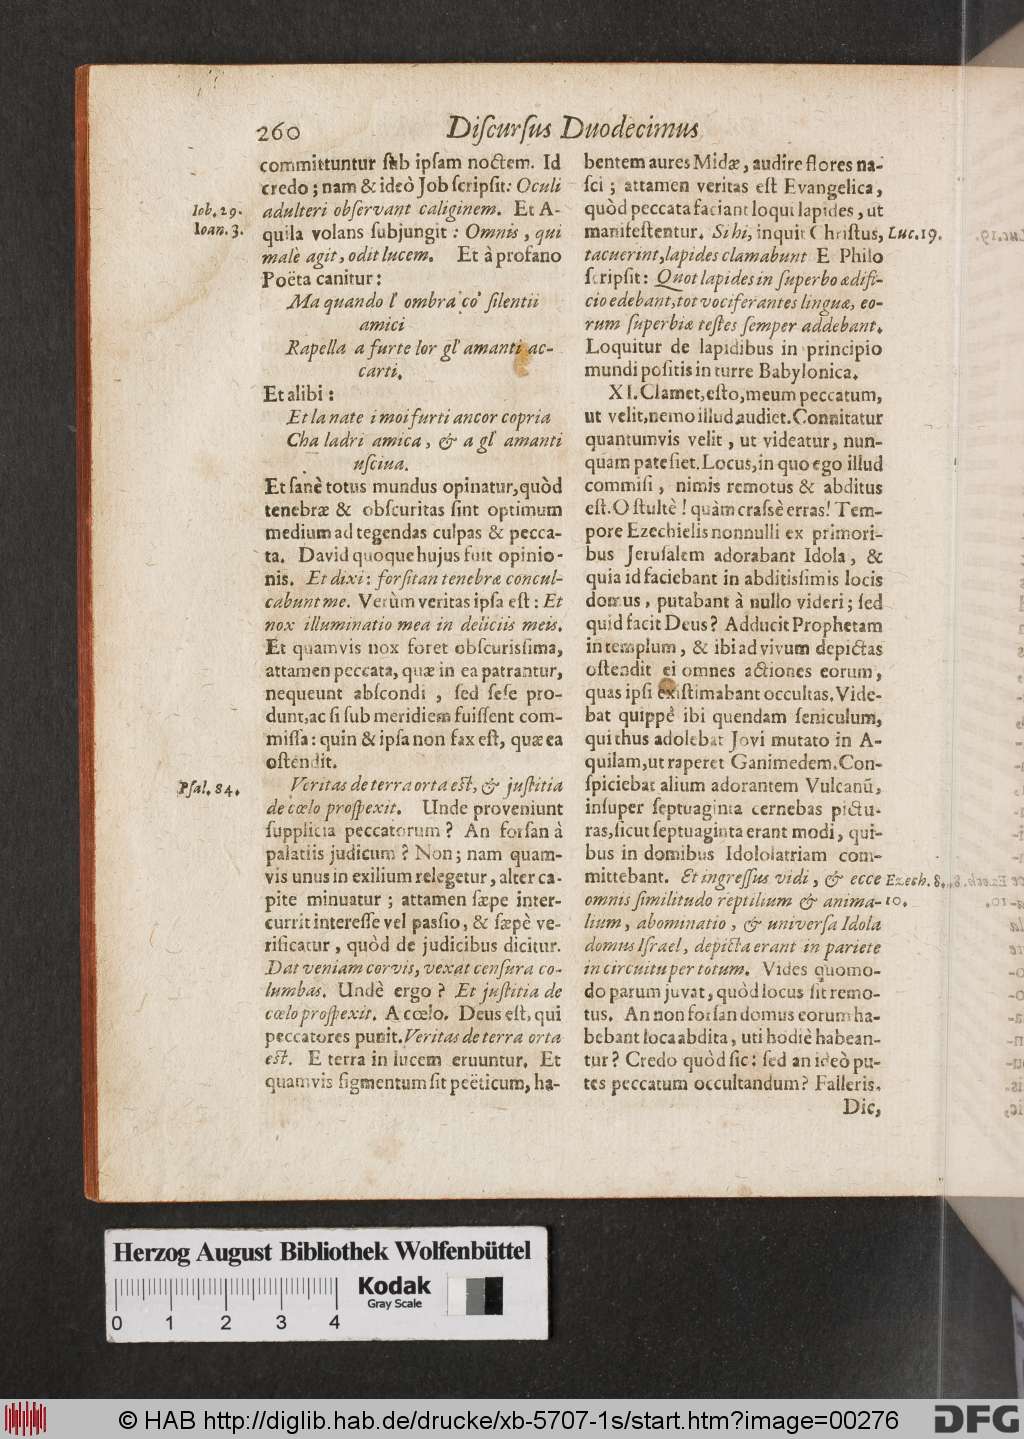 260 Diſcurſus Duodecimus
committuntur ſub ipſam noctem. Id
credo; nam & ideò Job ſcripſit: Oculi
Iob. 29.
adulteri obſervant caliginem. Et A-
Ioan. 3.
quila volans ſubjungit: Omnis, qui
malè agit, odit lucem. Et à profano
Poëta canitur:
Ma quando l' ombra co' ſilentii
amici
Rapella a furte lor gl' amanti ac-
carti.
Et alibi:
Et la nate i moi furti ancor copria
Cha ladri amica, & a gl' amanti
uſciua.
Et ſanè totus mundus opinatur, quòd
tenebræ & obſcuritas ſint optimum
medium ad tegendas culpas & pecca-
ta. David quoque hujus fuit opinio-
nis. Et dixi: forſitan tenebræ concul-
cabunt me. Verùm veritas ipſa eſt: Et
nox illuminatio mea in deliciis meis.
Et quamvis nox foret obſcurisſima,
attamen peccata, quæ in ea patrantur,
nequeunt abſcondi, ſed ſeſe pro-
dunt, ac ſi ſub meridiem fuiſſent com-
miſſa: quin & ipſa non fax eſt, quæ ea
oſtendit.
Pſal. 84.
Veritas de terra orta eſt, & juſtitia
de cœlo proſpexit. Unde proveniunt
ſupplicia peccatorum? An forſan à
palatiis judicum? Non; nam quam-
vis unus in exilium relegetur, alter ca-
pite minuatur; attamen ſæpe inter-
currit intereſſe vel pasſio, & ſæpè ve-
rificatur, quòd de judicibus dicitur.
Dat veniam corvis, vexat cenſura co-
lumbas. Undè ergo? Et juſtitia de
cœlo proſpexit. A cœlo. Deus eſt, qui
peccatores punit. Veritas de terra orta
eſt. E terra in lucem eruuntur. Et
quamvis figmentum ſit poëticum, ha-
bentem aures Midæ, audire flores na-
ſci; attamen veritas eſt Evangelica,
quòd peccata faciant loqui lapides, ut
manifeſtentur. Si hi, inquit Chriſtus,
Luc. 19.
tacuerint, lapides clamabunt E Philo
ſcripſit: Quot lapides in ſuperbo ædifi-
cio edebant, tot vociferantes linguæ, eo-
rum ſuperbiæ teſtes ſemper addebant.
Loquitur de lapidibus in principio
mundi poſitis in turre Babylonica.
XI. Clamet, eſto, meum peccatum,
ut velit, nemo illud audiet. Connitatur
quantumvis velit, ut videatur, nun-
quam patefiet. Locus, in quo ego illud
commiſi, nimis remotus & abditus
eſt. O ſtultè! quàm craſſè erras! Tem-
pore Ezechielis nonnulli ex primori-
bus Jeruſalem adorabant Idola, &
quia id faciebant in abditisſimis locis
domus, putabant à nullo videri; ſed
quid facit Deus? Adducit Prophetam
in templum, & ibi ad vivum depictas
oſtendit ei omnes actiones eorum,
quas ipſi exiſtimabant occultas. Vide-
bat quippè ibi quendam ſeniculum,
qui thus adolebat Jovi mutato in A-
quilam, ut raperet Ganimedem. Con-
ſpiciebat alium adorantem Vulcanū,
inſuper ſeptuaginta cernebas pictu-
ras, ſicut ſeptuaginta erant modi, qui-
bus in domibus Idololatriam com-
mittebant. Et ingreſſus vidi, & ecce
Ezech. 8.
omnis ſimilitudo reptilium & anima-
10.
lium, abominatio, & univerſa Idola
domus Iſrael, depicta erant in pariete
in circuitu per totum. Vides quomo-
do parum juvat, quòd locus ſit remo-
tus. An non forſan domus eorum ha-
bebant loca abdita, uti hodiè habean-
tur? Credo quòd ſic: ſed an ideò pu-
tes peccatum occultandum? Falleris.
Dic,
Herzog August Bibliothek Wolfenbüttel
Kodak
Gray Scale
0 1 2 3 4
© HAB http://diglib.hab.de/drucke/xb-5707-1s/start.htm?image=00276
DFG